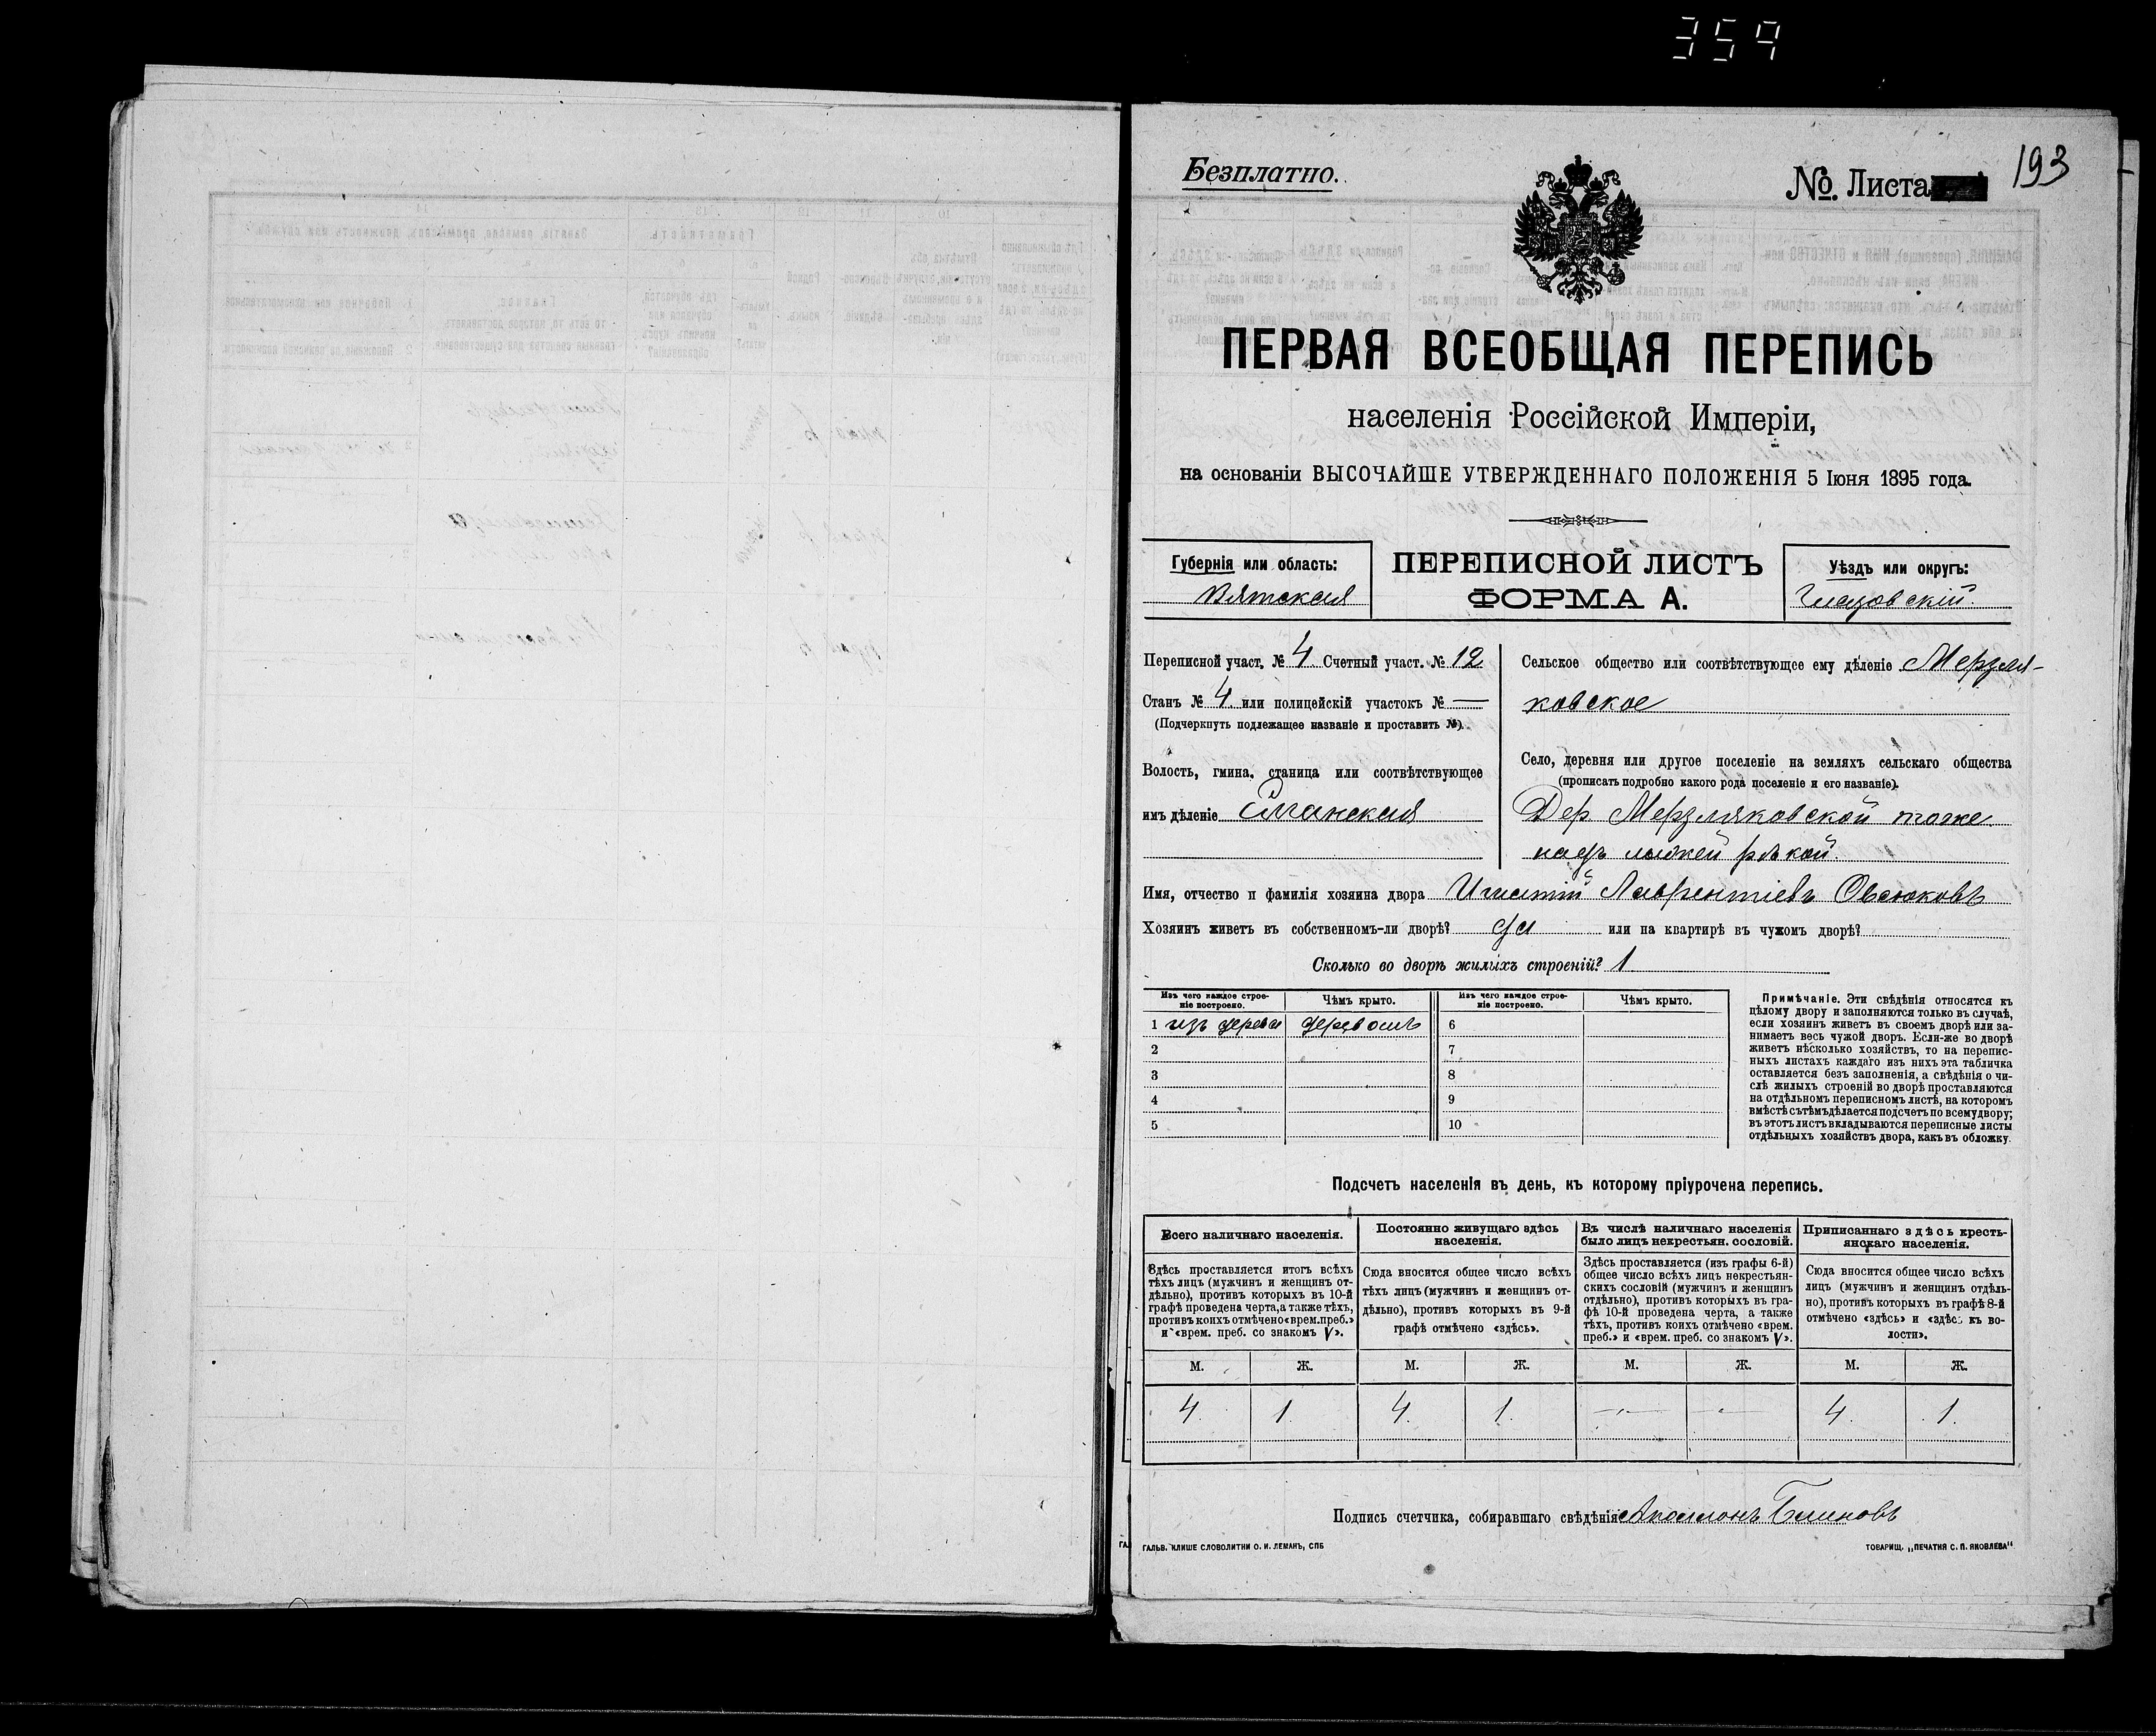 359
193
Безплатно.
№. Листа
ПЕРВАЯ ВСЕОБЩАЯ ПЕРЕПИСЬ
населенія Россійской Имперіи,
на основаніи ВЫСОЧАЙШЕ УТВЕРЖДЕННАГО ПОЛОЖЕНІЯ 5 Іюня 1895 года.
Губернія или область:
Вятская
ПЕРЕПИСНОЙ ЛИСТЪ
ФОРМА А.
Уѣздъ или округъ:
Глазовскій.
Переписной участ. № 4 Счетный участ. № 12
Станъ № 4 или полицейскій участокъ № —
(Подчеркнуть подлежащее названіе и проставить №).
Волость, гмина, станица или соотвѣтствующее
имъ дѣленіе
Сельское общество или соотвѣтствующее ему дѣленіе Мерзля-
ковское
Село, деревня или другое поселеніе на земляхъ сельскаго общества
(прописать подробно какого рода поселеніе и его названіе).
Дер Мерзляковской тоже
надъ рѣкой.
Имя, отчество и фамилія хозяина двора Игнатій Лаврентіевъ Овсюковъ
Хозяинъ живетъ въ собственномъ-ли дворѣ? да или на квартирѣ въ чужомъ дворѣ?
Сколько во дворѣ жилыхъ строеній? 1
Изъ чего каждое строе-
ніе построено.
Чѣмъ крыто.
Изъ чего каждое строе-
ніе построено.
Чѣмъ крыто.
1 изъ дерева деревомъ 6
2 7
3 8
4 9
5 10
Примѣчаніе. Эти свѣдѣнія относятся къ
цѣлому двору и заполняются только въ случаѣ,
если хозяинъ живетъ въ своемъ дворѣ или за-
нимаетъ весь чужой дворъ. Если-же во дворѣ
живетъ нѣсколько хозяйствъ, то на перепис-
ныхъ листахъ каждаго изъ нихъ эта табличка
оставляется безъ заполненія, а свѣдѣнія о чи-
слѣ жилыхъ строеній во дворѣ проставляются
на отдѣльномъ переписномъ листѣ, на которомъ
вмѣстѣ съ тѣмъ дѣлается подсчетъ по всему двору;
въ этотъ листъ вкладываются переписные листы
отдѣльныхъ хозяйствъ двора, какъ въ обложку.
Подсчетъ населенія въ день, къ которому пріурочена перепись.
Всего наличнаго населенія.
Здѣсь проставляется итогъ всѣхъ
тѣхъ лицъ (мужчинъ и женщинъ от-
дѣльно), противъ которыхъ въ 10-й
графѣ проведена черта, а также тѣхъ,
противъ коихъ отмѣчено «врем. преб.»
и «врем. преб. со знакомъ V».
Постоянно живущаго здѣсь
населенія.
Сюда вносится общее число всѣхъ
тѣхъ лицъ (мужчинъ и женщинъ от-
дѣльно), противъ которыхъ въ 9-й
графѣ отмѣчено «здѣсь».
Въ числѣ наличнаго населенія
было лицъ некрестьян. сословій.
Здѣсь проставляется (изъ графы 6-й)
общее число всѣхъ лицъ некрестьян-
скихъ сословій (мужчинъ и женщинъ
отдѣльно), противъ которыхъ въ гра-
фѣ 10-й проведена черта, а также
тѣхъ, противъ коихъ отмѣчено «врем.
преб.» и «врем. преб. со знакомъ V».
Приписаннаго здѣсь кресть-
янскаго населенія.
Сюда вносится общее число всѣхъ
лицъ (мужчинъ и женщинъ отдѣль-
но), противъ которыхъ въ графѣ 8-й
отмѣчено «здѣсь» и «здѣсь къ во-
лости».
М. Ж. М. Ж. М. Ж. М. Ж.
4. 1. 4. 1. — — 4. 1.
Подпись счетчика, собиравшаго свѣдѣнія Аполлонъ Блиновъ
ГАЛЬВ. КЛИШЕ СЛОВОЛИТНИ О. И. ЛЕМАНЪ, СПБ
ТОВАРИЩ. „ПЕЧАТНЯ С. П. ЯКОВЛЕВА"